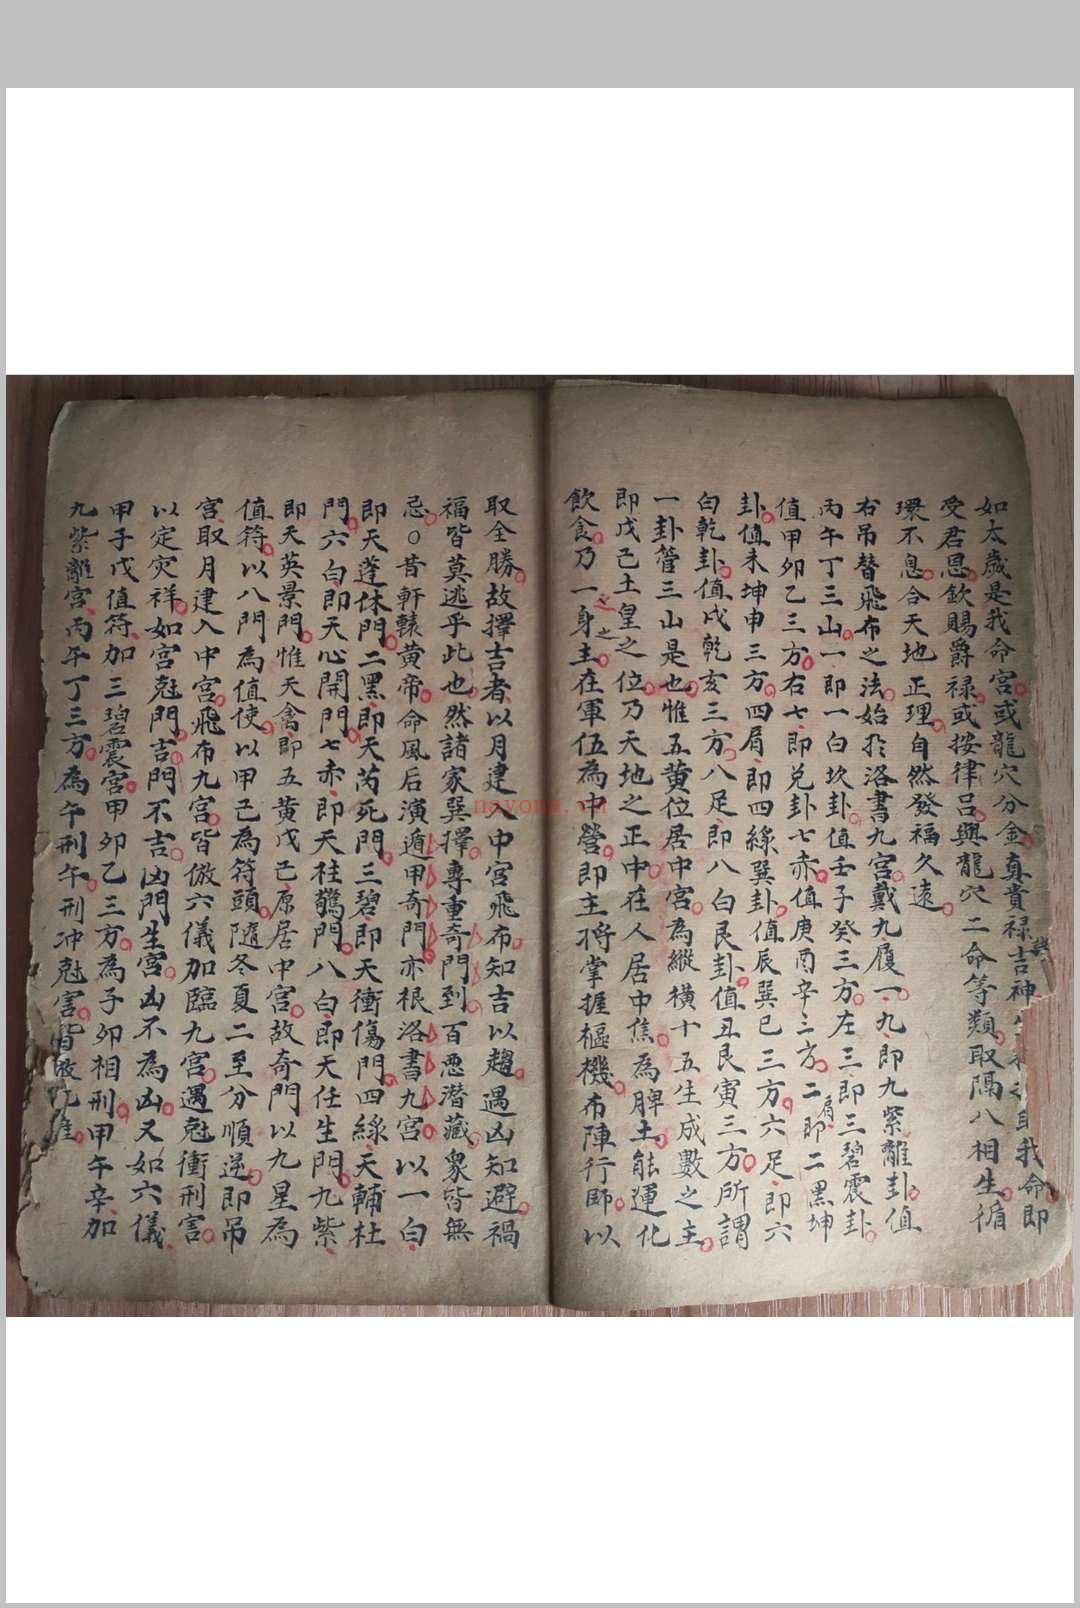 如太歲是我命宮或龍穴分金真貴祿吉神我命即
受君恩欽賜爵祿或按律呂與龍穴二命等類取隔八相生循
環不息合天地正理自然發福久遠
右吊替飛布之法始於洛書九宮戴九履一九即九紫離卦值
丙午丁三山一即一白坎卦值壬子癸三方左三即三碧震卦
值甲卯乙三方右七即兌卦七赤值庚酉辛三方二肩即二黑坤
卦值未坤申三方四肩即四綠巽卦值辰巽巳三方六足即六
白乾卦值戌乾亥三方八足即八白艮卦值丑艮寅三方所謂
一卦管三山是也惟五黃位居中宮為縱橫十五生成數之主
即戊己土皇之位乃天地之正中在人居中焦為脾土能運化
飲食乃一身之主在軍伍為中營即主將掌握樞機布陣行師以
取全勝故擇吉者以月建入中宮飛布知吉以趨遇凶知避禍
福皆莫逃乎此也然諸家巽擇專重奇門到百惡潛藏衆皆無
忌○昔軒轅黃帝命風后演遁甲奇門亦根洛書九宮以一白
即天蓬休門二黑即天芮死門三碧即天衝傷門四綠天輔杜
門六白即天心開門七赤即天柱驚門八白即天任生門九紫
即天英景門惟天禽即五黃戊己原居中宮故奇門以九星為
值符以八門為值使以甲己為符頭隨冬夏二至分順逆即吊
宮取月建入中宮飛布九宮皆倣六儀加臨九宮遇尅衝刑害
以定灾祥如宮尅門吉門不吉凶門生宮凶不為凶又如六儀
甲子戊值符加三碧震宮甲卯乙三方為子卯相刑甲午辛加
九紫離宮丙午丁三方為午刑午刑冲尅害皆倣此推
nayona.vn